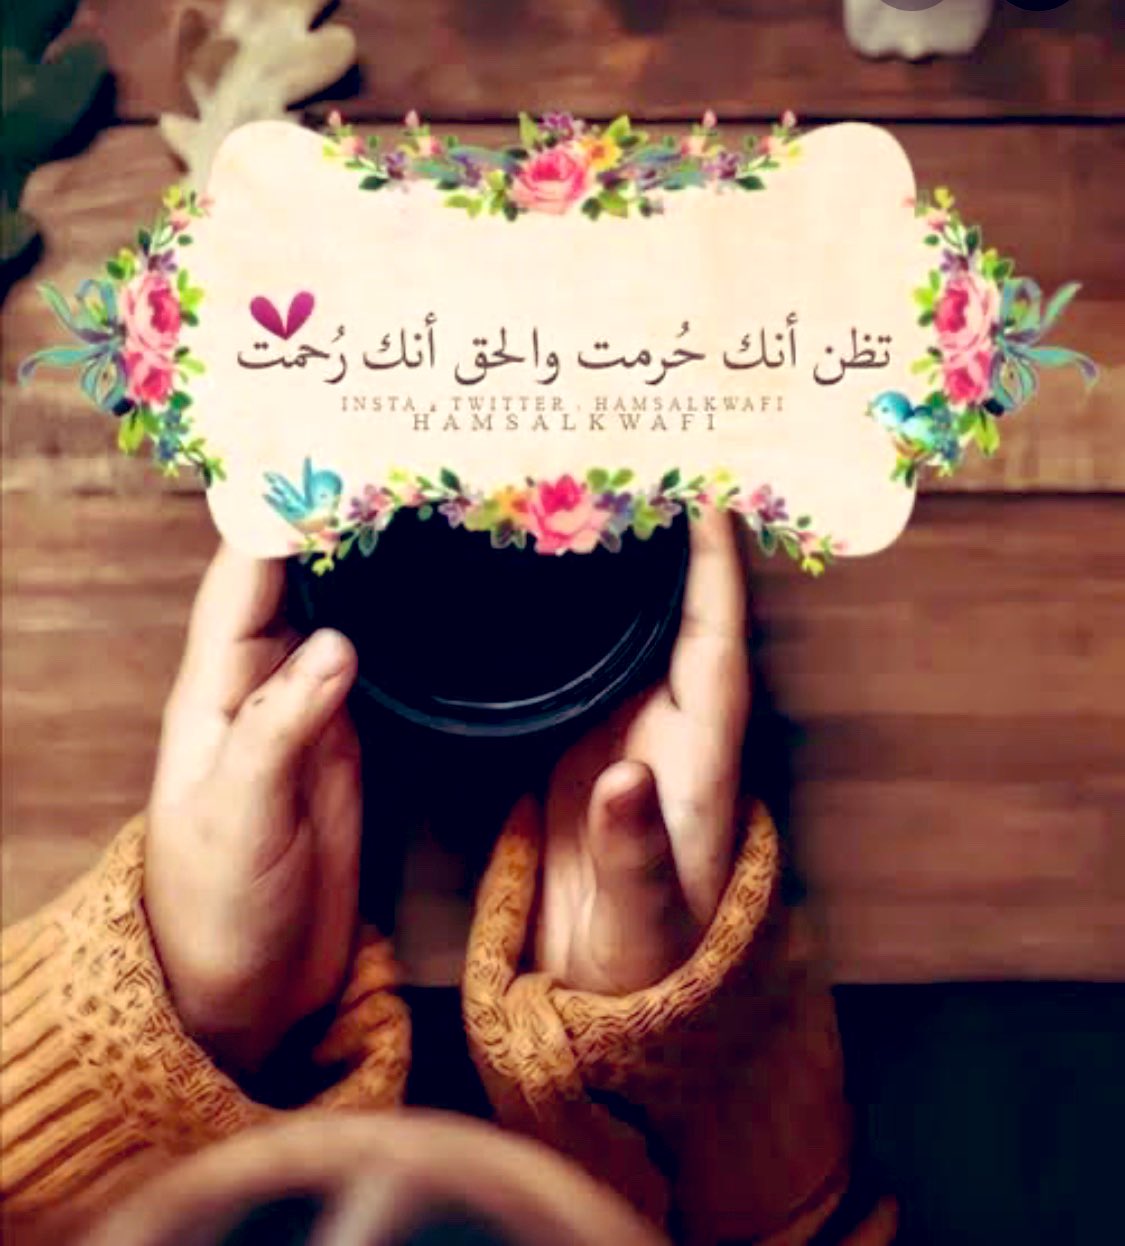 تظن أنك حُرمت والحق أنك رُحمت
INSTA , TWITTER , HAMSALKWAFI
HAMSALKWAFI